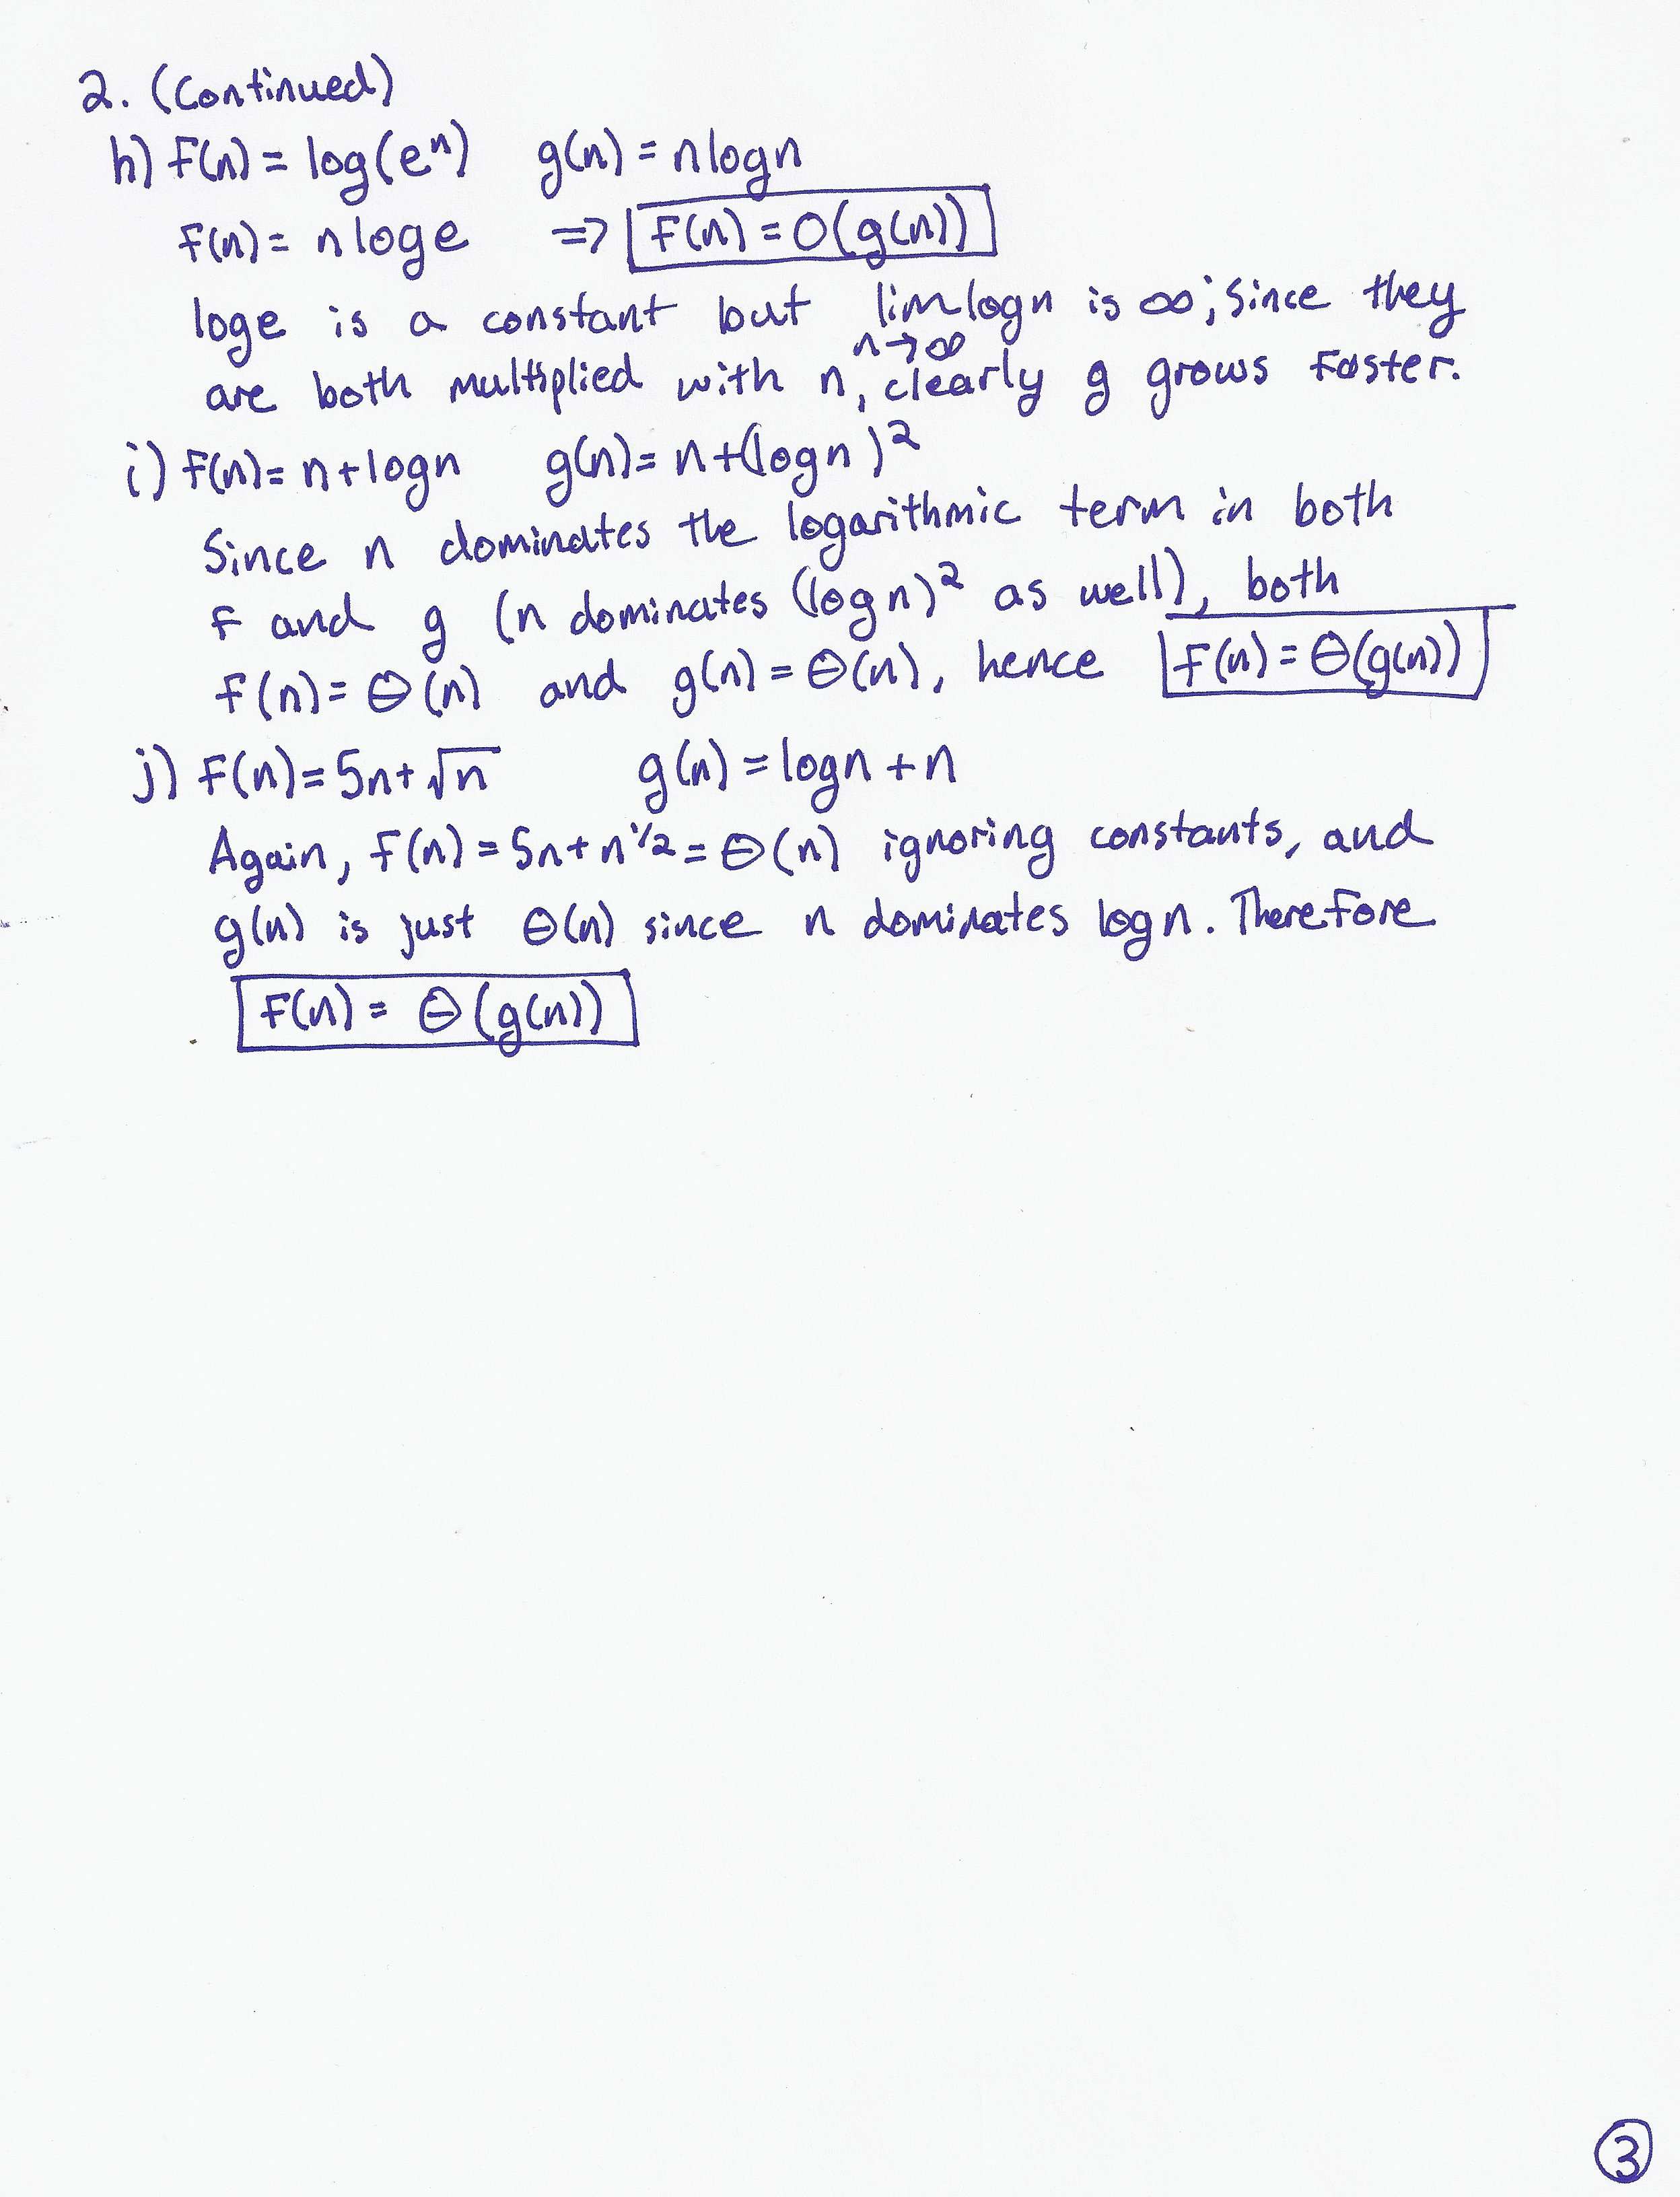 2. (Continued)
h) f(n) = log(eⁿ) g(n) = nlogn
f(n) = nloge ⇒ f(n) = O(g(n))
loge is a constant but lim logn is ∞; since they
n→∞
are both multiplied with n, clearly g grows faster.
i) f(n) = n+logn g(n) = n+(logn)²
Since n dominates the logarithmic term in both
f and g (n dominates (logn)² as well), both
f(n) = Θ(n) and g(n) = Θ(n), hence f(n) = Θ(g(n))
j) f(n) = 5n+√n g(n) = logn + n
Again, f(n) = 5n+n^1/2 = Θ(n) ignoring constants, and
g(n) is just Θ(n) since n dominates logn. Therefore
f(n) = Θ(g(n))
3